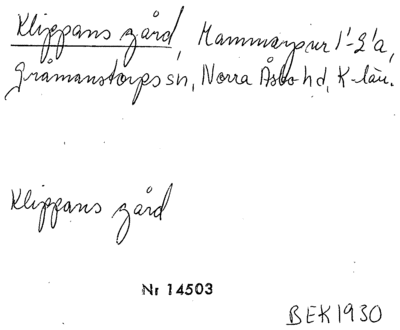 Klippans gård, Hammarpur 1'-2'a,
Gråmanstorps sn, Norra Åsbo hd, K-län.
Klippans gård
Nr 14503
BEK 1930